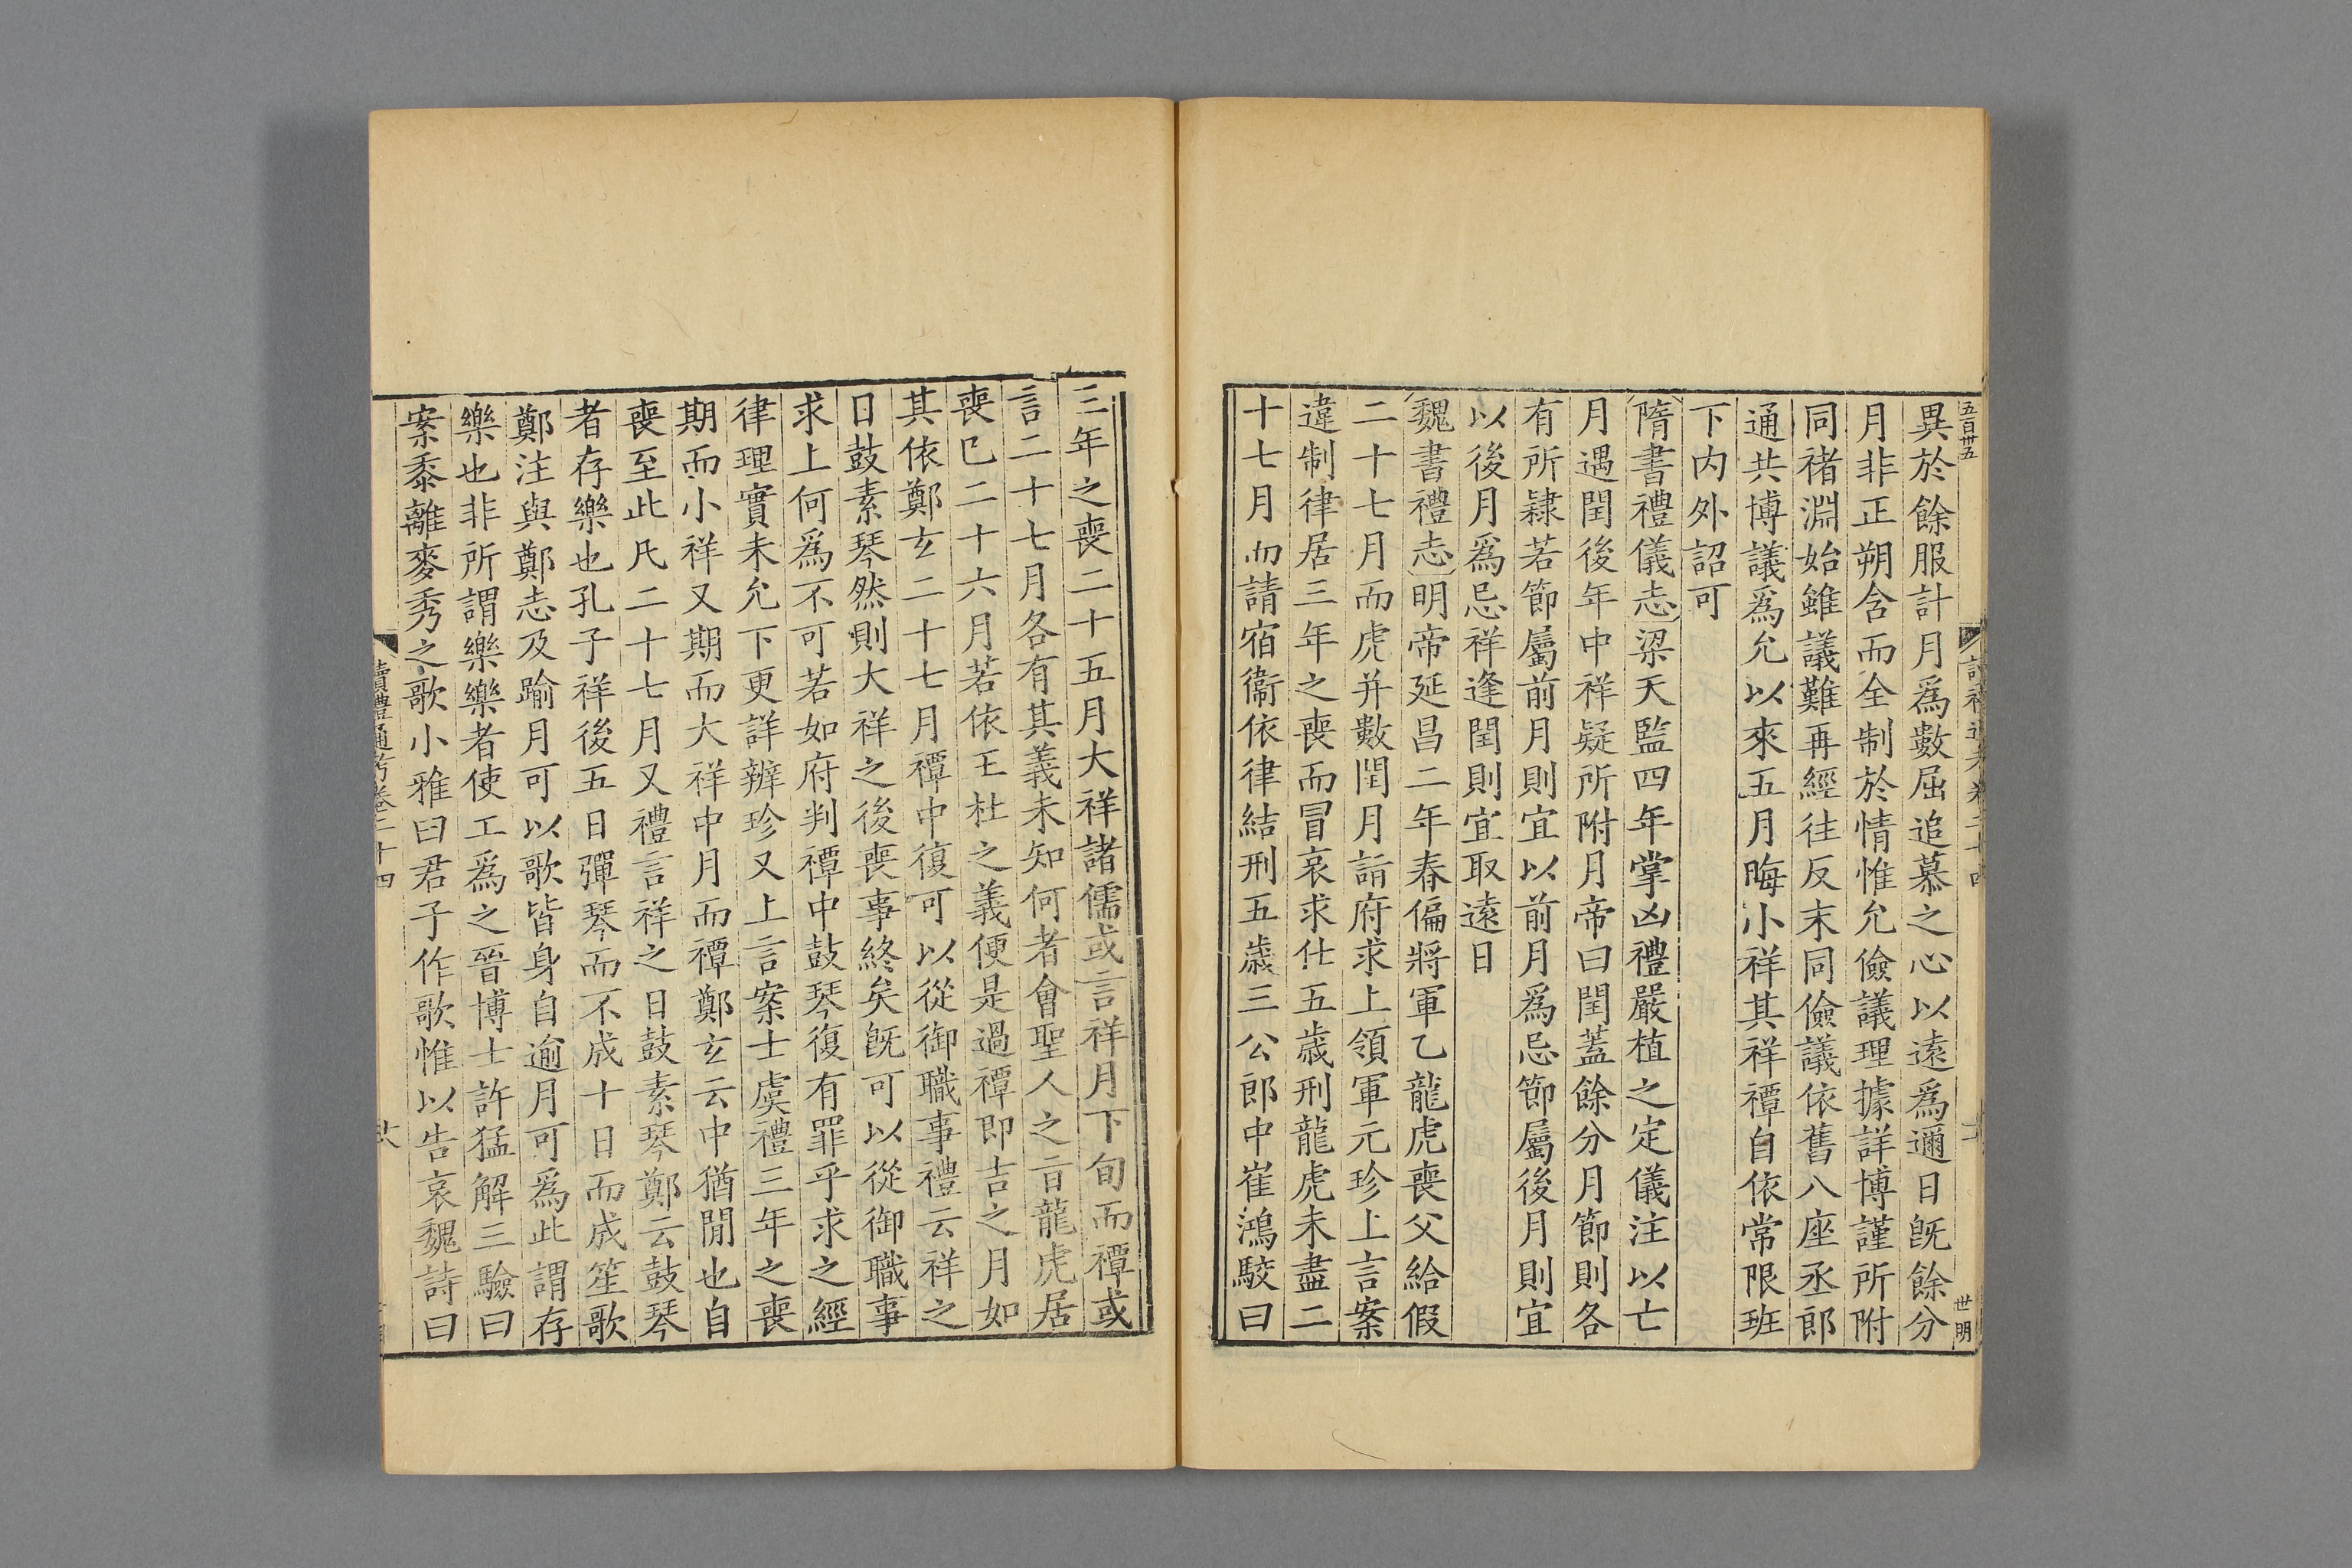 五百卅五
世明
異於餘服計月爲數屈追慕之心以遠爲邇日旣餘分
月非正朔含而全制於情惟允儉議理據詳博謹所附
同褚淵始雖議難再經往反末同儉議依舊八座丞郎
通共博議爲允以來五月晦小祥其祥禫自依常限班
下內外詔可
隋書禮儀志梁天監四年掌凶禮嚴植之定儀注以亡
月遇閏後年中祥疑所附月帝曰閏蓋餘分月節則各
有所隸若節屬前月則宜以前月爲忌節屬後月則宜
以後月爲忌祥逢閏則宜取遠日
魏書禮志明帝延昌二年春偏將軍乙龍虎喪父給假
二十七月而虎并數閏月詣府求上領軍元珍上言案
違制律居三年之喪而冒哀求仕五歲刑龍虎未盡二
十七月而請宿衞依律結刑五歲三公郎中崔鴻駮曰
三年之喪二十五月大祥諸儒或言祥月下旬而禫或
言二十七月各有其義未知何者會聖人之旨龍虎居
喪已二十六月若依王杜之義便是過禫即吉之月如
其依鄭玄二十七月禫中復可以從御職事禮云祥之
日鼓素琴然則大祥之後喪事終矣旣可以從御職事
求上何爲不可若如府判禫中鼓琴復有罪乎求之經
律理實未允下更詳辨珍又上言案士虞禮三年之喪
期而小祥又期而大祥中月而禫鄭玄云中猶閒也自
喪至此凡二十七月又禮言祥之日鼓素琴鄭云鼓琴
者存樂也孔子祥後五日彈琴而不成十日而成笙歌
鄭注與鄭志及踰月可以歌皆身自逾月可爲此謂存
樂也非所謂樂樂者使工爲之晉博士許猛解三驗曰
案黍離麥秀之歌小雅曰君子作歌惟以告哀魏詩曰
讀禮通考卷二十四